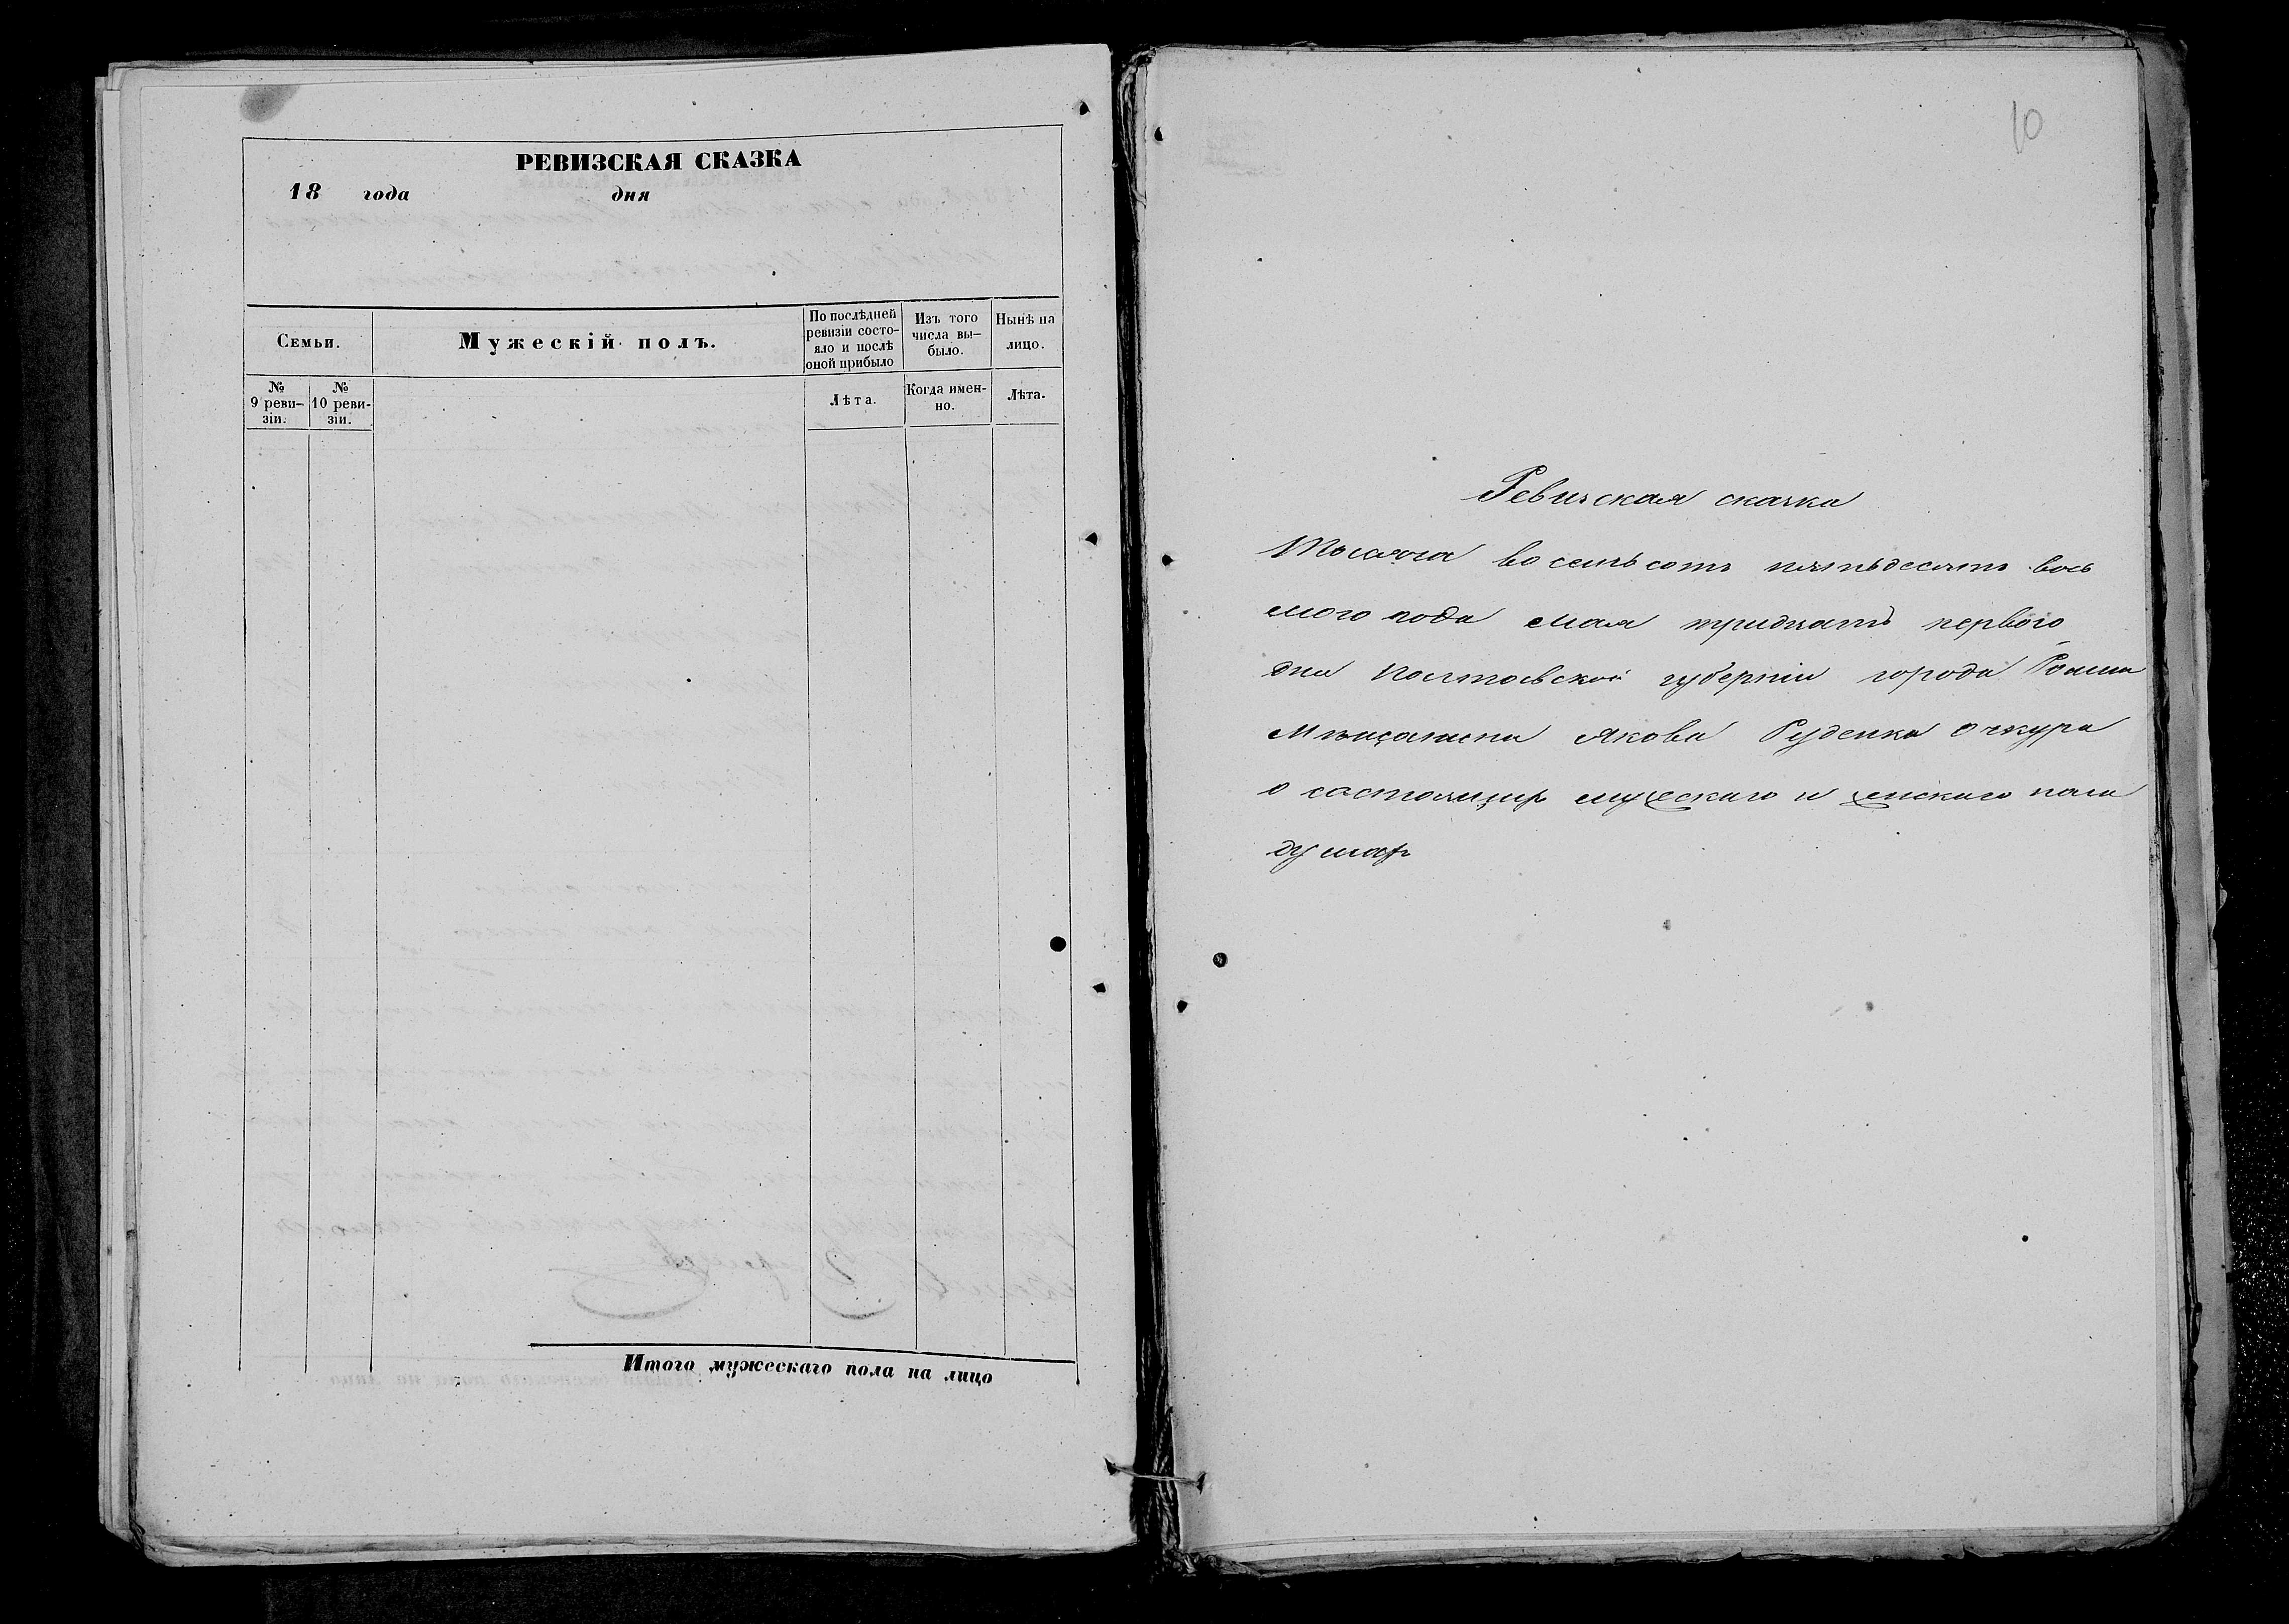 РЕВИЗСКАЯ СКАЗКА
18 года дня
Семьи.
Мужескій полъ.
По послѣдней
ревизіи состо-
яло и послѣ
оной прибыло
Изъ того
числа вы-
было.
Нынѣ на
лицо.
№
9 реви-
зіи.
№
10 реви-
зіи.
Лѣта.
Когда имен-
но.
Лѣта.
Итого мужескаго пола на лицо
10
Ревизская сказка
Тысяча восемьсотъ пятьдесятъ вось
мого года мая тридцать первого
дня Полтавской губерніи города Ромна
Мѣщанина Якова Руденка Очкура
о состоящихъ мужескаго и женскаго пола
душахъ